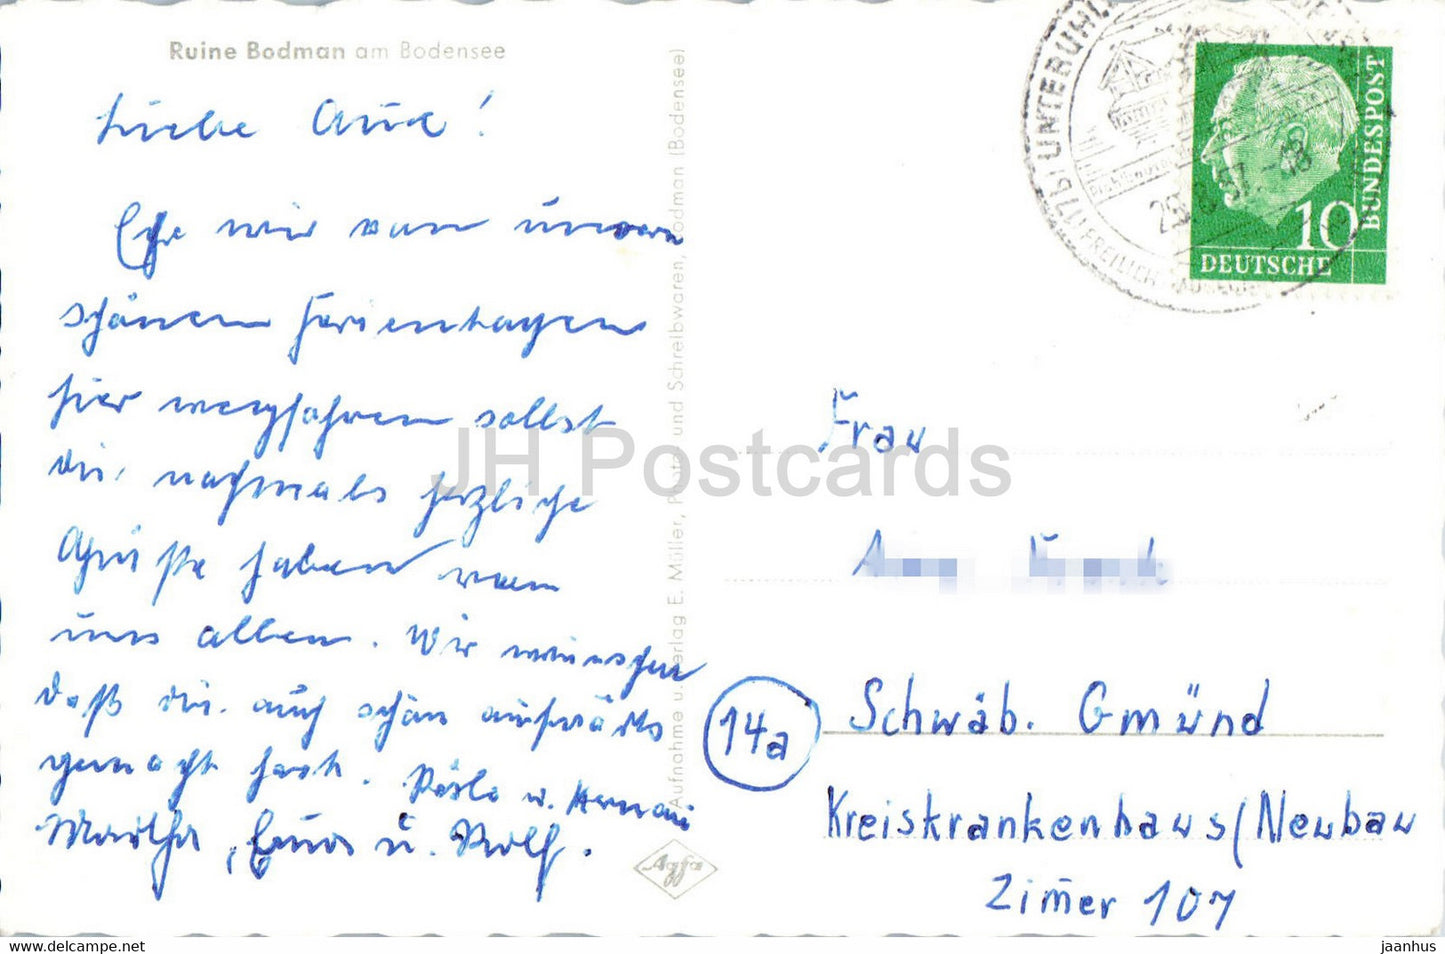 Ruine Bodman am Bodensee
Liebe
Ehe wir von unseren
schönen Ferientagen
hier wegfahren sollst
du nochmals herzliche
Grüße haben von
uns allen. Wir wünschen
daß du auch schön aufwärts
gemacht hast. Rösle u. Hermann
Martha, u. Rolf.
Aufnahme u. Verlag E. Müller, Photo- und Schreibwaren, Bodman (Bodensee)
Agfa
(17b) UNTERUHLD
FREILICHTMUSEUM
DEUTSCHE
BUNDESPOST
10
Frau
14a
Schwäb. Gmünd
Kreiskrankenhaus/Neubau
Zimer 107
JH Postcards
jaanhus